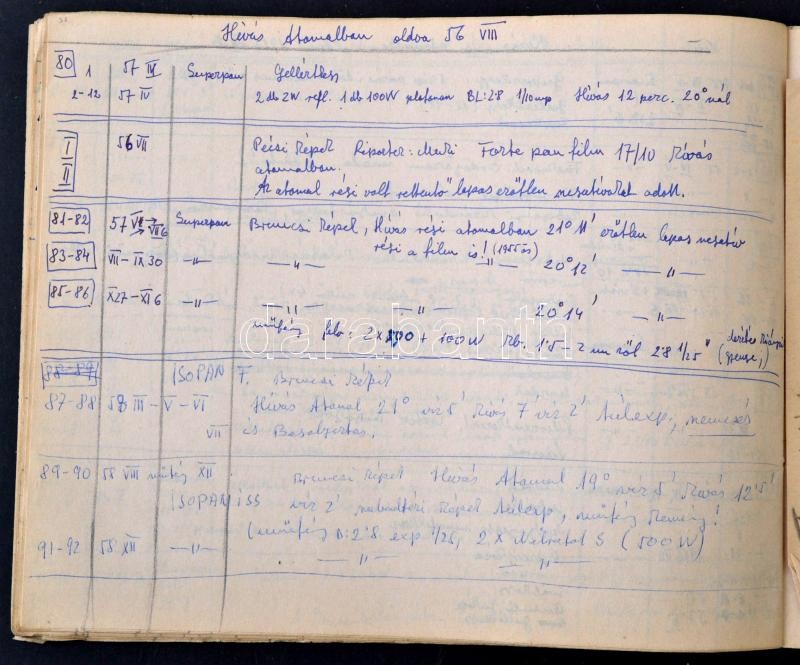 Hívás Atomalban oldva 56 VIII
80 1 57 IV Superpan Gellérthegy
2-12 57 IV 2 db ZW refl. 1 db 100W plafonon BL:2.8 1/10 mp Hívás 12 perc. 20° nál
I 56 VII Pécsi Képek Riporter: Meki Forte pan film 17/10 Hívás
II atomalban.
Az atomal régi volt rettentő lapos erőtlen negatívokat adott.
81-82 57 VI → VII 6 Superpan Brencsi Képek, Hívás régi atomalban 21° 11' erőtlen lapos negatív
régi a film is! (1955 ös)
83-84 VII - IX 30 —"— —"— —"— 20° 12' —"—
85-86 X 27 - XI 6 —"— —"— —"— 20° 14' —"—
műfény felv: 2 x 100 + 100W kb. 1.5 - 2 m ről 2.8 1/25"
88-89 ISOPAN F. Brencsi Képek
87-88 58 III - V - VI Hívás Atomal 21° víz 5' 7' víz 2' túlexp.,
VII is
89-90 58 VIII műfény XII. Brencsi Képek Hívás Atomal 19° víz 5' 12.5'
ISOPAN ISS víz 2' szabadtéri Képek túlexp, műfény Kemény!
(műfény D:2.8 exp 1/25, 2 x Nitraphot S (500W)
91-92 58 XII —"— —"— —"—
darabanth